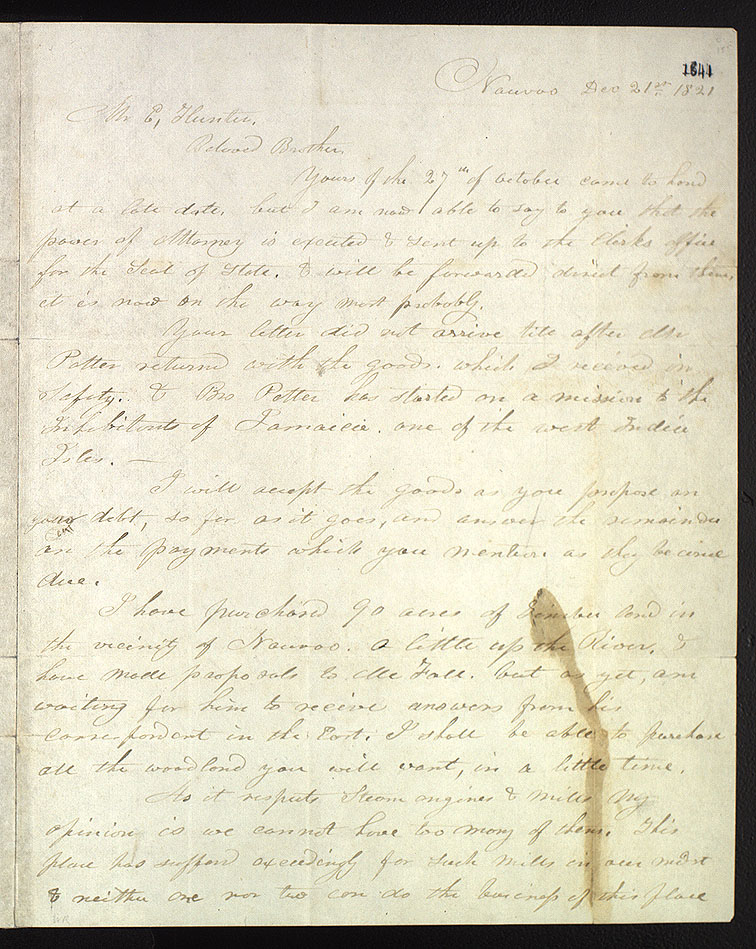 1841
Nauvoo Dec 21st 1821
Mr E, Hunter.
Beloved Brother
Yours of the 27th of october came to hand
at a late date. but I am now able to say to you that the
power of Attorney is executed & sent up to the Clerks office
for the Seal of State. & will be forwarded direct from there,
it is now on the way most probably.
Your letter did not arrive till after Mr
Potter returned with the goods. which I received in
Safety. & Bro Potter has started on a mission to the
Inhibitants of Jamaica. one of the west Indice
Isles. —
I will accept the goods as you propose on
your debt, so far as it goes, and answer the remainder
on the payments which you mention as they become
due.
I have purchased 90 acres of Timber land in
the vicinity of Nauvoo. a little up the River. &
have made proposals to Mc Fall. but as yet, am
waiting for him to receive answers from his
correspondent in the East. I shall be able to purchase
all the woodland you will want, in a little time.
As it respects Steam engines & mills my
opinion is we cannot have too many of them. This
place has suffered exceedingly for such mills in our midst
& neither one nor two can do the business of this place